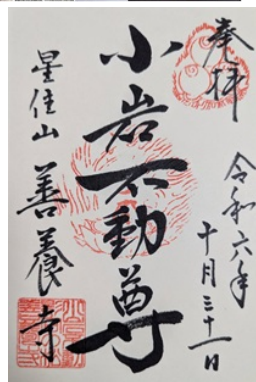 奉拝
令和六年
十月三十一日
小岩不動尊
星住山 善養寺